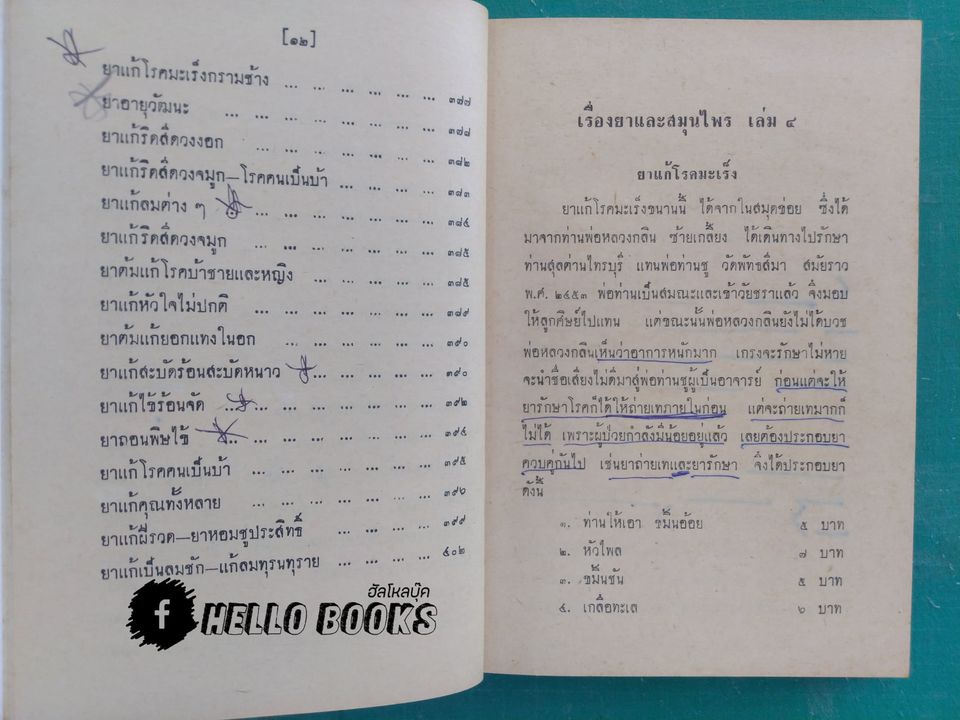 [๑๒]
ยาแก้โรคมะเร็งกรามช้าง ... ... ... ... ... ... ๓๗๗
ยาอายุวัฒนะ ... ... ... ... ... ... ... ... ๓๗๘
ยาแก้ริดสีดวงงอก ... ... ... ... ... ... ... ๓๘๒
ยาแก้ริดสีดวงจมูก—โรคคนเป็นบ้า ... ... ... ... ๓๘๓
ยาแก้ลมต่าง ๆ ... ... ... ... ... ... ... ๓๘๔
ยาแก้ริดสีดวงจมูก ... ... ... ... ... ... ... ๓๘๕
ยาต้มแก้โรคบ้าชายและหญิง ... ... ... ... ... ๓๘๕
ยาแก้หัวใจไม่ปกติ ... ... ... ... ... ... ... ๓๘๙
ยาต้มแก้ยอกแทงในอก ... ... ... ... ... ... ๓๙๐
ยาแก้สะบัดร้อนสะบัดหนาว ... ... ... ... ... ๓๙๐
ยาแก้ไข้ร้อนจัด ... ... ... ... ... ... ... ๓๙๒
ยาถอนพิษไข้ ... ... ... ... ... ... ... ... ๓๙๔
ยาแก้โรคคนเป็นบ้า ... ... ... ... ... ... ... ๓๙๕
ยาแก้คุณทั้งหลาย ... ... ... ... ... ... ... ๓๙๖
ยาแก้ผีรวด—ยาหอมชูประสิทธิ์ ... ... ... ... ๓๙๙
ยาแก้เป็นลมชัก—แก้ลมทุรนทุราย ... ... ... ... ๔๐๒
f
ฮัลโหลบุ๊ค
HELLO BOOKS
เรื่องยาและสมุนไพร เล่ม ๔
ยาแก้โรคมะเร็ง
ยาแก้โรคมะเร็งขนานนี้ ได้จากในสมุดข่อย ซึ่งได้
มาจากท่านพ่อหลวงกลิน ซ้ายเกลี้ยง ได้เดินทางไปรักษา
ท่านสุลต่านไทรบุรี แทนพ่อท่านชู วัดพัทธสีมา สมัยราว
พ.ศ. ๒๔๕๓ พ่อท่านเป็นสมณะและเข้าวัยชราแล้ว จึงมอบ
ให้ลูกศิษย์ไปแทน แต่ขณะนั้นพ่อหลวงกลินยังไม่ได้บวช
พ่อหลวงกลินเห็นว่าอาการหนักมาก เกรงจะรักษาไม่หาย
จะนำชื่อเสียงไม่ดีมาสู่พ่อท่านชูผู้เป็นอาจารย์ ก่อนแต่จะให้
ยารักษาโรคก็ได้ให้ถ่ายเทภายในก่อน แต่จะถ่ายเทมากก็
ไม่ได้ เพราะผู้ป่วยกำลังมีน้อยอยู่แล้ว เลยต้องประกอบยา
ควบคู่กันไป เช่นยาถ่ายเทและยารักษา จึงได้ประกอบยา
ดังนี้
๑. ท่านให้เอา ขมิ้นอ้อย ๕ บาท
๒. หัวไพล ๗ บาท
๓. ขมิ้นชัน ๕ บาท
๔. เกลือทะเล ๖ บาท